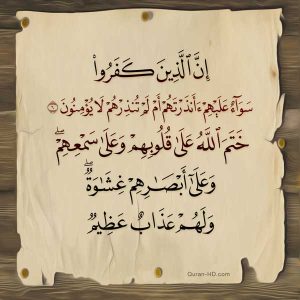 إِنَّ ٱلَّذِينَ كَفَرُوا۟
سَوَآءٌ عَلَيْهِمْ ءَأَنذَرْتَهُمْ أَمْ لَمْ تُنذِرْهُمْ لَا يُؤْمِنُونَ ٦
خَتَمَ ٱللَّهُ عَلَىٰ قُلُوبِهِمْ وَعَلَىٰ سَمْعِهِمْ ۖ
وَعَلَىٰٓ أَبْصَـٰرِهِمْ غِشَـٰوَةٌ ۖ
وَلَهُمْ عَذَابٌ عَظِيمٌ
Quran-HD.com